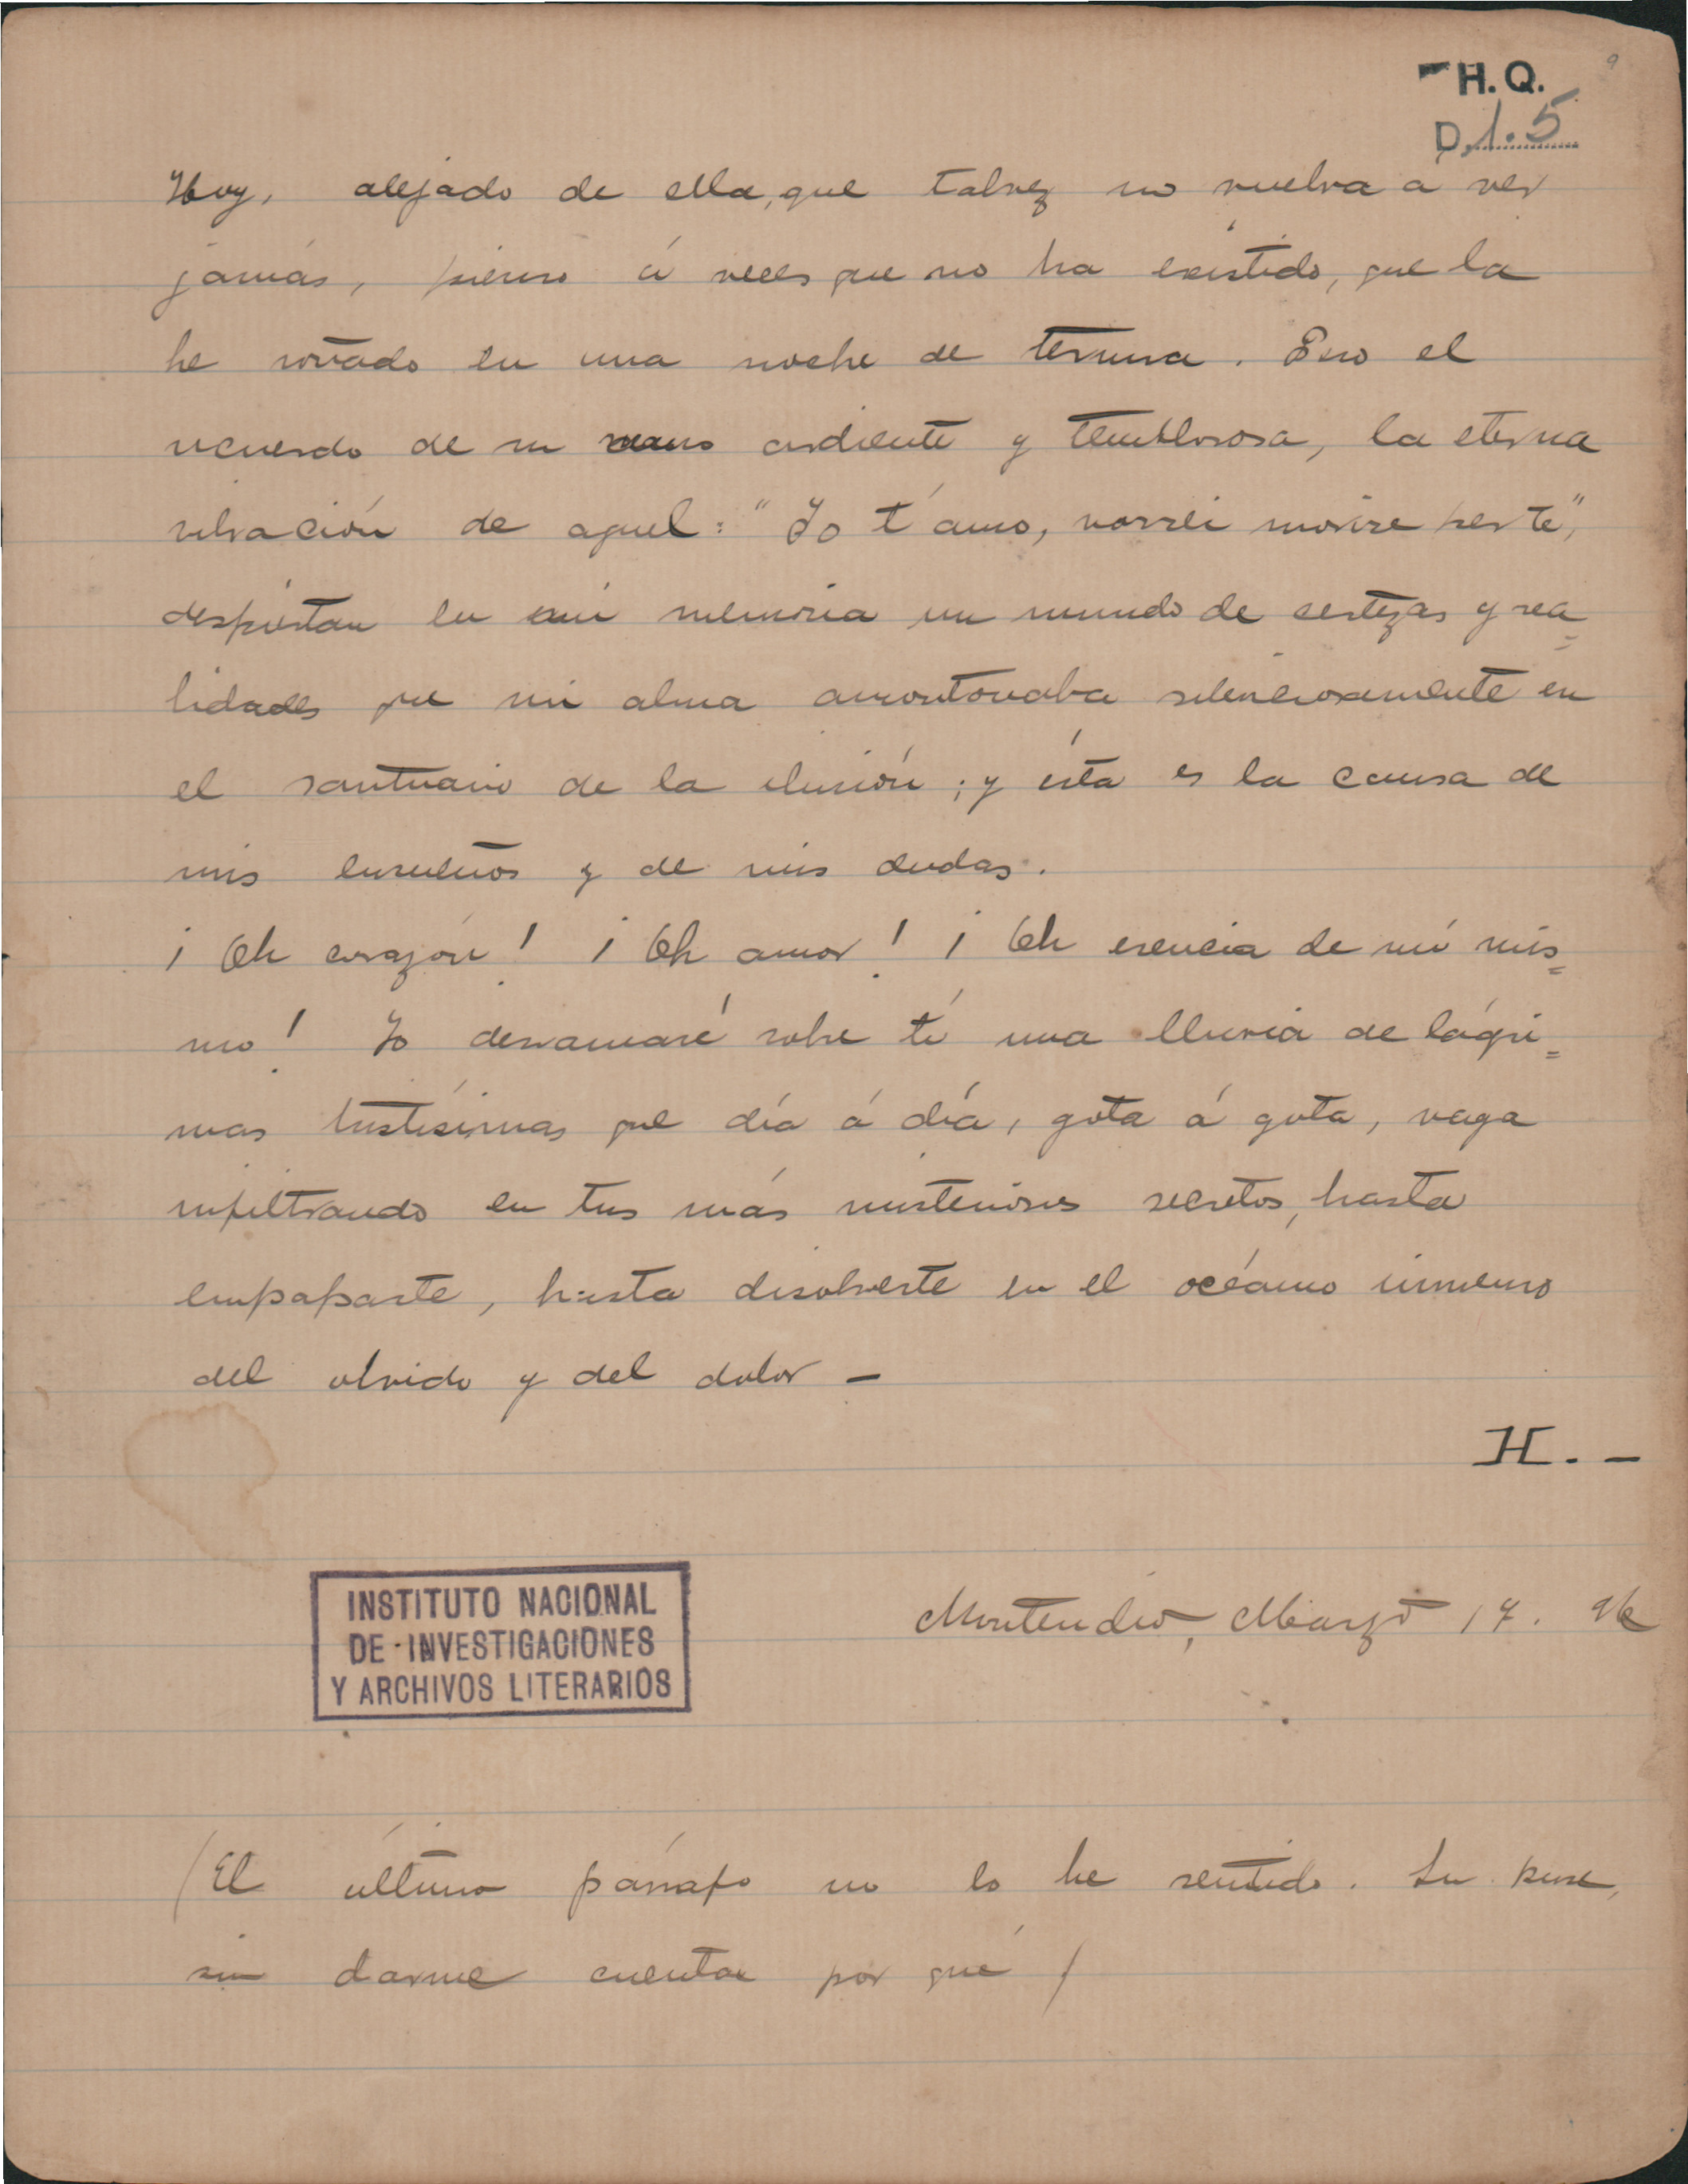 9
H.Q.
D. 1.5
Hoy, alejado de ella, que talvez no vuelva a ver
jamás, pienso á veces que no ha existido, que la
he soñado en una noche de ternura. Pero el
recuerdo de su mano ardiente y temblorosa, la eterna
vibración de aquel: "Io t'amo, vorrei morire per te",
despiertan en mi memoria un mundo de certezas y rea=
lidades que mi alma amontonaba silenciosamente en
el santuario de la ilusión; y ésta es la causa de
mis ensueños y de mis dudas.
¡Oh corazón! ¡Oh amor! ¡Oh esencia de mí mis=
mo! Yo derramaré sobre tí una lluvia de lágri=
mas tristísimas que día á día, gota á gota, vaya
infiltrando en tus más misteriosos secretos, hasta
empaparte, hasta disolverte en el océano inmenso
del olvido y del dolor —
H. —
INSTITUTO NACIONAL
DE INVESTIGACIONES
Y ARCHIVOS LITERARIOS
Montevideo, Marzo 17.
(El último párrafo no lo he sentido. Lo puse,
sin darme cuenta por qué)